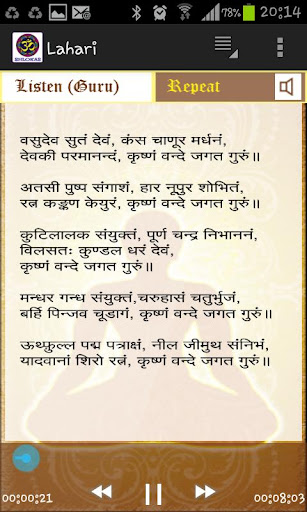 78%
20:14
SHLOKAS
Lahari
Listen (Guru)
Repeat
वसुदेव सुतं देवं, कंस चाणूर मर्धनं,
देवकी परमानन्दं, कृष्णं वन्दे जगत गुरुं॥
अतसी पुष्प संगाशं, हार नूपुर शोभितं,
रत्न कङ्कण केयुरं, कृष्णं वन्दे जगत गुरुं॥
कुटिलालक संयुक्तं, पूर्ण चन्द्र निभाननं,
विलसतः कुण्डल धरं देवं,
कृष्णं वन्दे जगत गुरुं॥
मन्धर गन्ध संयुक्तं,चरुहासं चतुर्भुजं,
बर्हि पिन्जव चूडागं, कृष्णं वन्दे जगत गुरुं॥
ऊथ्फुल्ल पद्म पत्राक्षं, नील जीमुथ संनिभं,
यादवानां शिरो रत्नं, कृष्णं वन्दे जगत गुरुं॥
00:00:21
00:08:03